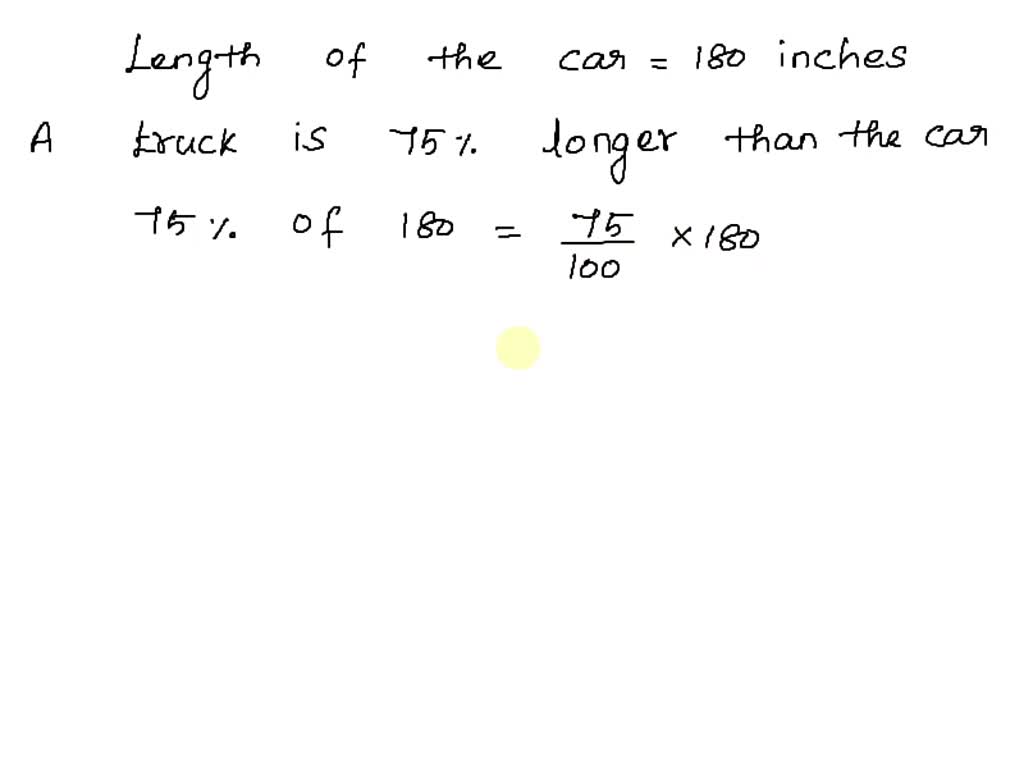 Length of the car = 180 inches
A truck is 75% longer than the car
75% of 180 = 75/100 × 180